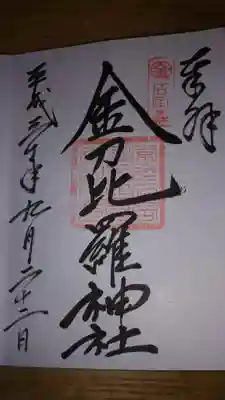 奉拝
金刀比羅神社
平成三十年九月二十二日